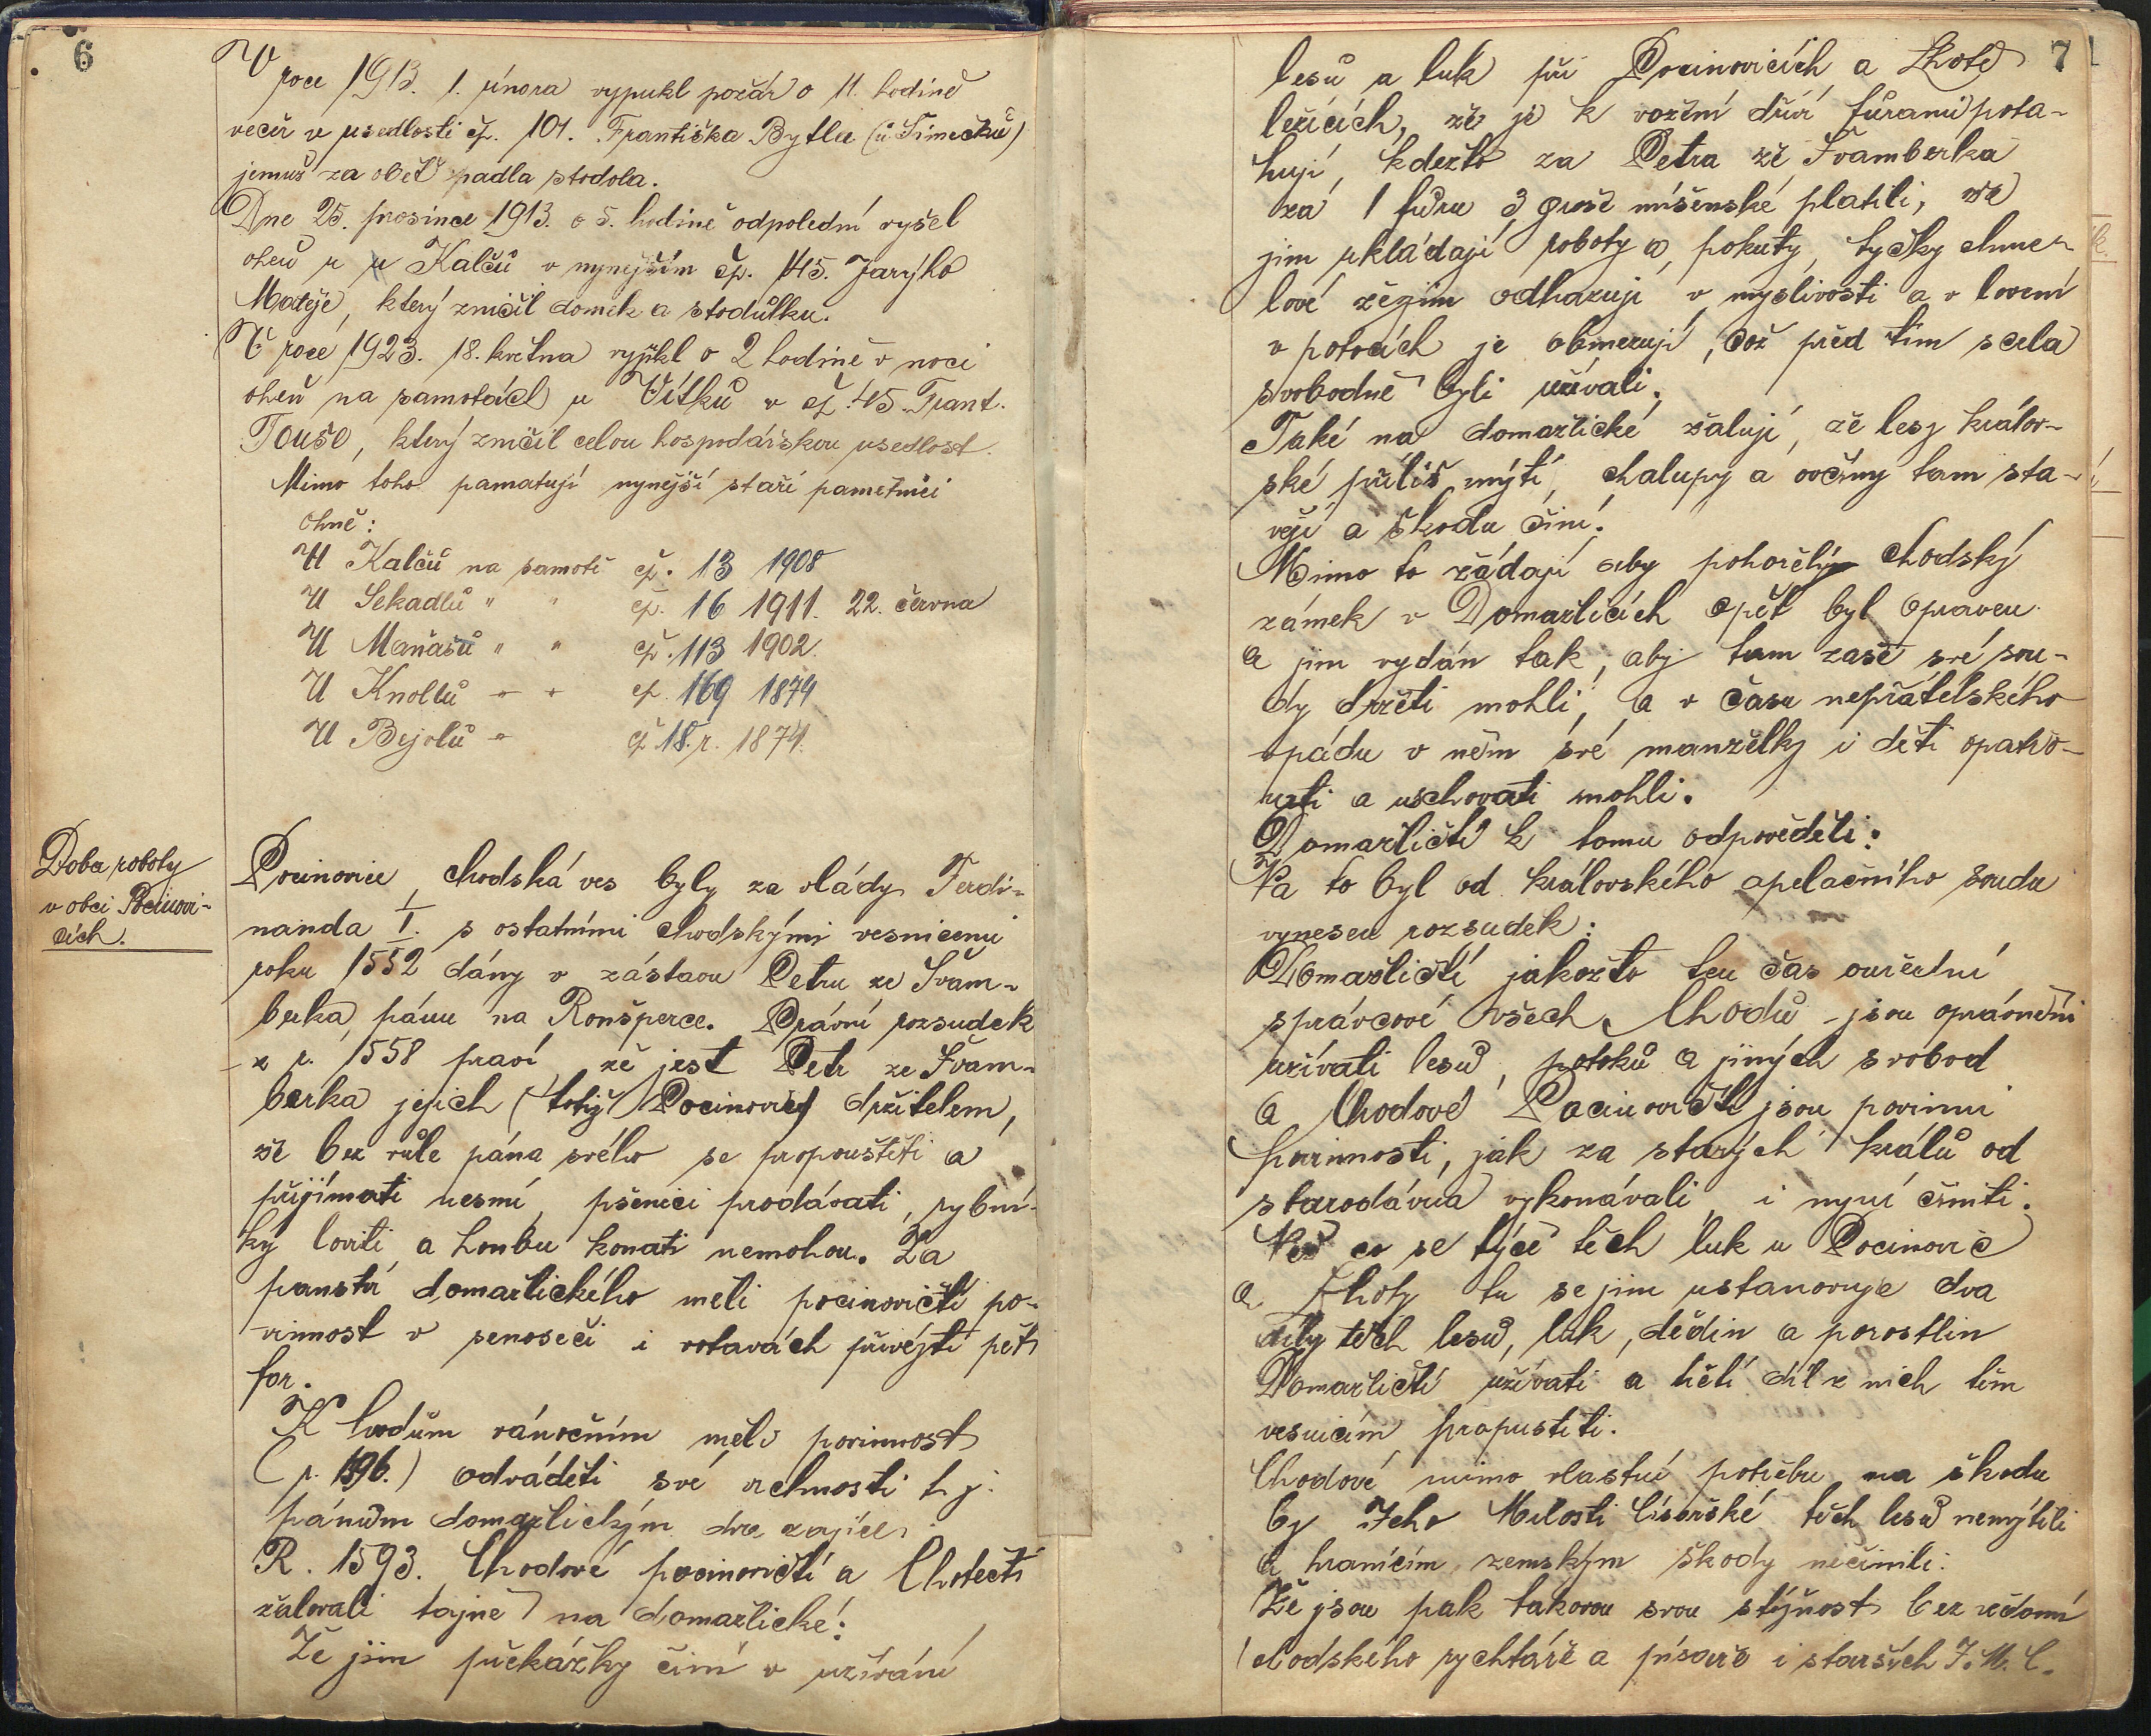 6
V roce 1913. 1. února vypukl požár o 11. hodině
večer v usedlosti čp. 101. Františka Bytla (u Šimečků)
jemuž za oběť padla stodola.
Dne 25. prosince 1913. o 5. hodině odpolední vyšel
oheň u Kalčů v nynějším čp. 145. Jarýho
Matěje, který zničil domek a stodůlku.
V roce 1923. 18. května vypukl o 2 hodině v noci
oheň na samotách u Vítků v čp. 45. Frant.
Touše, který zničil celou hospodářskou usedlost.
Mimo toho pamatují nynější staří pamětníci
ohně:
U Kalčů na samotě čp. 13 1908
U Sekadlů " " čp. 16 1911. 22. června
U Maňasů " " čp. 113 1902.
U Knollů " " čp. 169 1874
U Bejolů " čp 18. r. 1874.
Doba roboty
v obci Pocinovi-
cích.
Pocinovice, chodská ves byly za vlády Ferdi-
nanda I. s ostatními chodskými vesnicemi
roku 1552 dány v zástavu Petru ze Švam-
berka, pánu na Ronšperce. Právní rozsudek
z r. 1558 praví, že jest Petr ze Švam-
berka jejich (totiž Pocinovic) držitelem,
že bez vůle pána svého se propouštěti a
přijímati nesmí, pšenici prodávati, rybní-
ky loviti a honbu konati nemohou. Za
panství domažlického měli pocinovičtí po-
vinnost v senoseči i votavách přivézti pět
for.
K hodům vánočním měli povinnost
(r. 1596.) odváděti své vrchnosti t. j.
pánům domažlickým dva zajíce.
R. 1593. Chodové pocinovičtí a Lhotečtí
žalovali tajně na domažlické:
Že jim překážky činí v užívání
7
lesů a luk při Pocinovicích a Lhotě
ležících, že je k vožení dříví fůrami pota-
hují, kdežto za Petra ze Švamberka
za 1 fůru 3 groše míšenské platili, že
jim ukládají roboty a pokuty, tyčky chme-
lové zčejim odhazují v myslivosti a v lovení
v potocích je obmezují, což před tím scela
svobodně byli užívali.
Také na domažlické žalují, že lesy králov-
ské příliš mýtí, chalupy a ovčíny tam sta-
vějí a škodu činí.
Mimo to žádají aby pohořelý Chodský
zámek v Domažlicích opět byl opraven
a jim vydán tak, aby tam zase své sou-
dy držeti mohli, a v času nepřátelského
vpádu v něm své manželky i děti opatro-
vati a uschovati mohli.
Domažličtí k tomu odpověděli:
Na to byl od královského apelačního soudu
vynesen rozsudek:
Domažličtí jakožto ten čas ouřední
správcové všech Chodů jsou oprávněni
užívati lesů, potoků a jiných svobod
a Chodové Pocinovičtí jsou povinni
povinnosti, jak za starých králů od
starodávna vykonávali, i nyní činiti.
Než co se týče těch luk u Pocinovic
a Lhoty tu se jim ustanovuje dva
díly těch lesů, luk, dědin a porostlin
Domažličtí užívati a třetí díl z nich těm
vesnicím propustiti.
Chodové mimo vlastní potřebu na škodu
by Jeho Milosti Císařské těch lesů nemýtili
a hranicím zemským škody nečinili.
Že jsou pak takovou svou stížnost bez vědomí
chodského rychtáře a písaře i starších J. M. C.